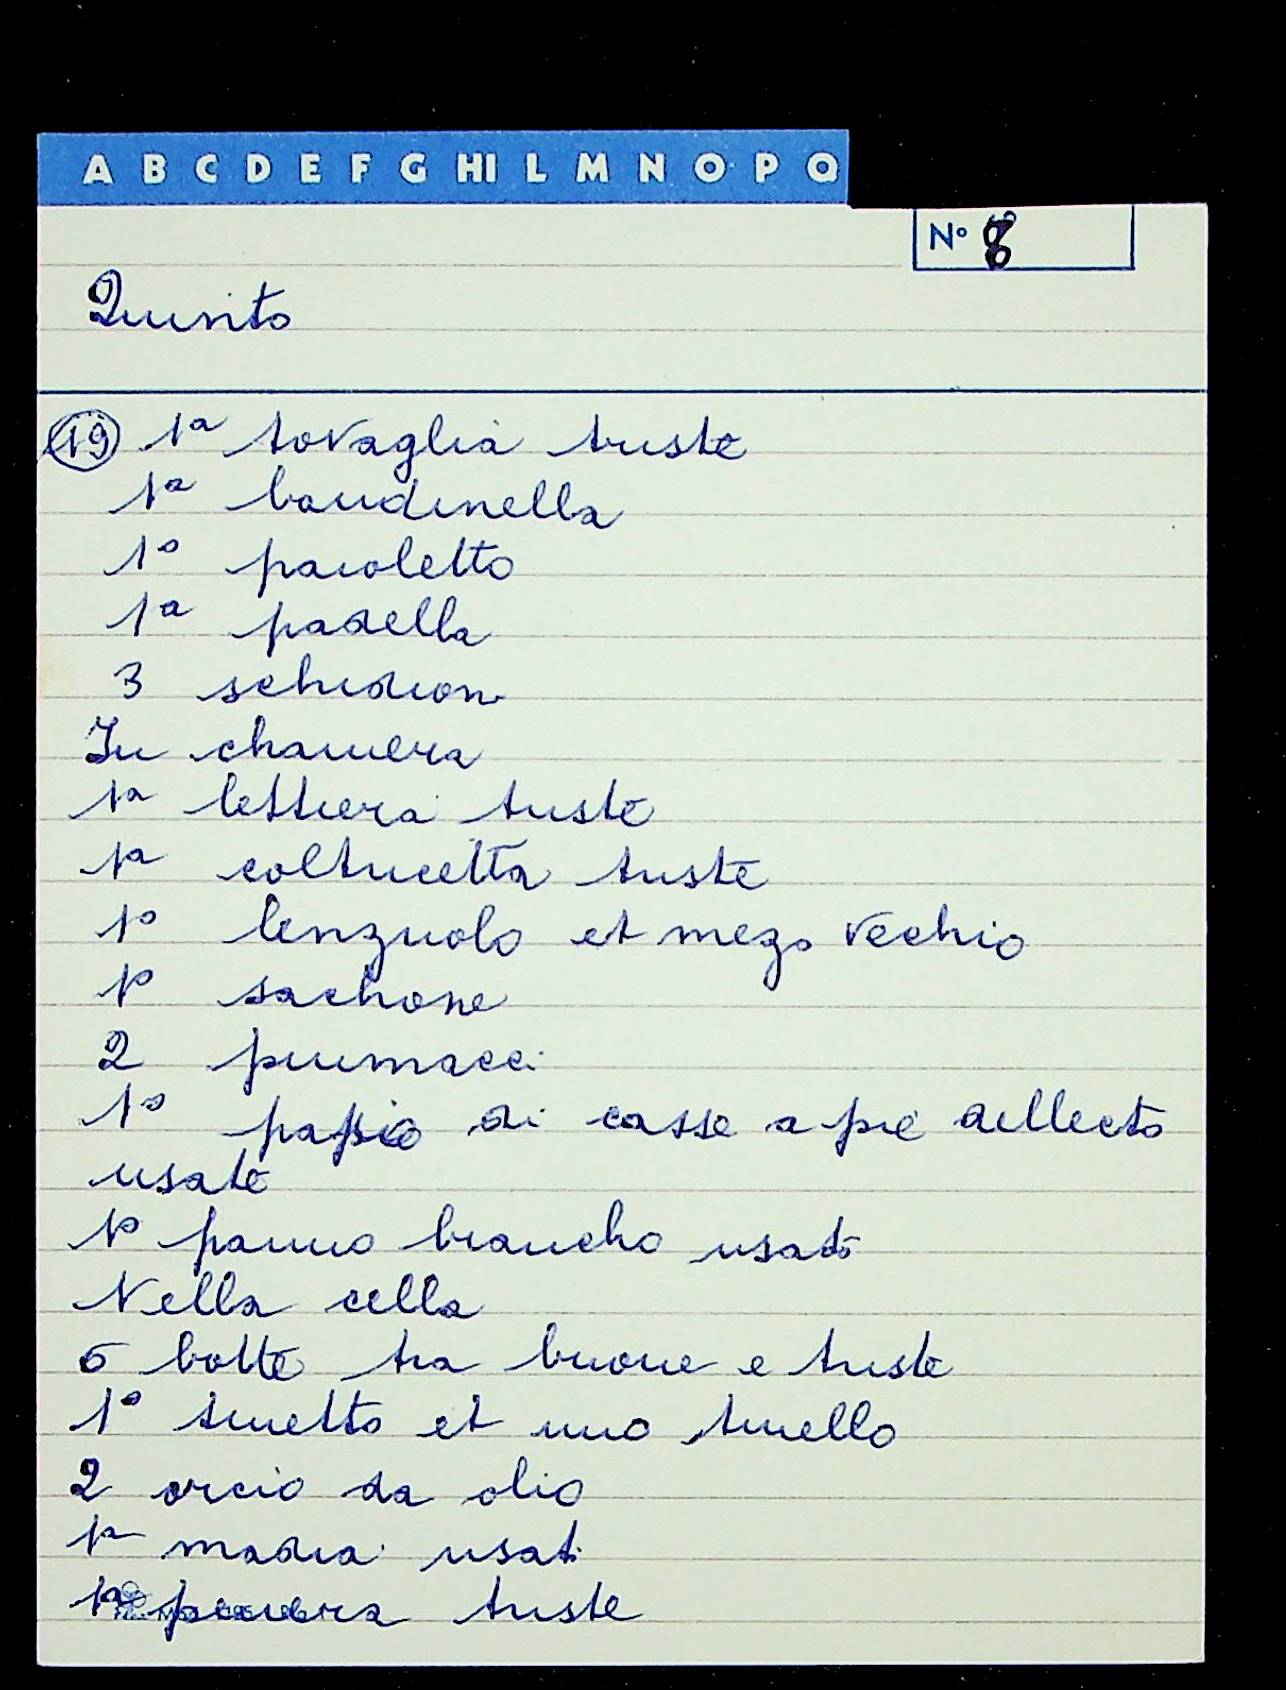 A B C D E F G HI L M N O P Q
N° 8
Quinto
19 1ª tovaglia triste
1ª bandinella
1º paioletto
1ª padella
3 schidion
In chamera
1ª lettiera triste
1ª coltricetta triste
1º lenzuolo et mezo vechio
1º sachone
2 piumacci
1º di casse a piè dellecto
usate
1º panno biancho usato
Nella cella
6 botte tra buone e triste
1º tinetto et uno tinello
2 orcio da olio
1ª madia usati
1ª triste